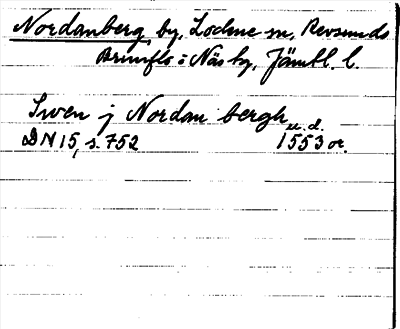 Nordanberg, by, Lockne sn, Revsunds
Brunflo o Näs tg, Jämtl. l.
Swen j Nordan bergh
u.d.
DN 15, s. 752 1553 or.